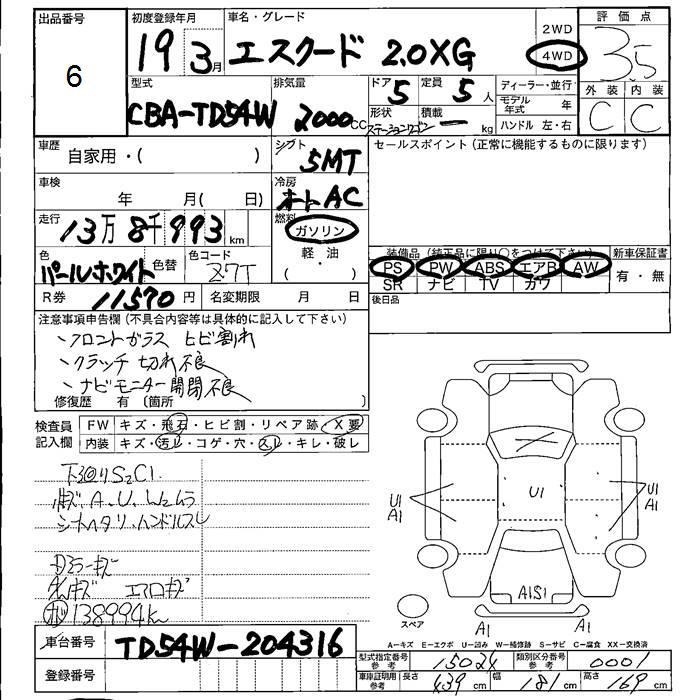 出品番号 初度登録年月 車名・グレード 2WD 評価点
6 19 3月 エスクード 2.0XG 4WD 3.5
型式 排気量 ドア 定員 ディーラー・並行 外装 内装
CBA-TD54W 2000cc 5 5人 モデル年式 年 C C
形状 積載 ハンドル 左・右
ステーションワゴン ー kg
車歴 自家用・( ) シフト 5MT セールスポイント(正常に機能するものに限ります)
車検 年 月( 日) 冷房 オートAC
走行 13万8千993km 燃料 ガソリン
軽・油
色 色替 色コード 装備品(純正品に限り○をつけて下さい) 新車保証書
パールホワイト Z7T PS PW ABS エアB AW 有・無
SR ナビ TV カワ
R券 11570円 名変期限 月 日 後日品
注意事項申告欄(不具合内容等は具体的に記入して下さい)
、フロントガラス ヒビ割れ
、クラッチ 切れ不良
、ナビモニター開閉不良
修復歴 有〔箇所 〕
検査員 FW キズ・飛石・ヒビ割・リペア跡・X要
記入欄 内装 キズ・汚れ・コゲ・穴・スレ・キレ・破レ
下廻りS2C1
A.U.W2ムラ
シートヘタリ.ハンドルスレ
ドアミラーキズ
エアロキズ
138994k
U1 U1 U1
A1 A1
A1S1
A1 A1
スペア
A-キズ E-エクボ U-凹み W-補修跡 S-サビ C-腐食 XX-交換済
車台番号 TD54W-204316
型式指定番号 参考 15024 類別区分番号 参考 0001
登録番号 車庫証明用 参考 長さ 439cm 幅 181cm 高さ 169cm